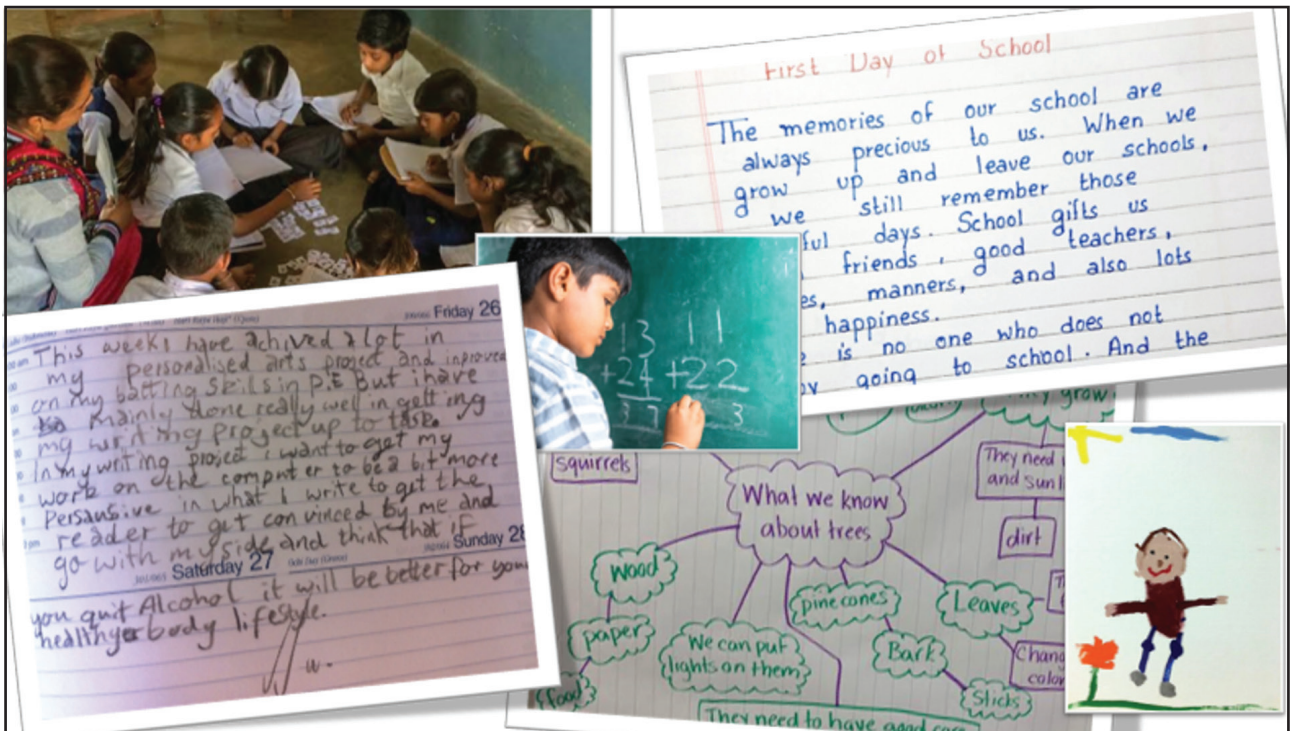 First Day of School
The memories of our school are
always precious to us. When we
grow up and leave our schools,
we still remember those
ful days. School gifts us
friends, good teachers,
es, manners, and also lots
happiness.
is no one who does not
going to school. And the
13 11
+24 +22
37 3
Friday 26
This weeks I have achived a lot in
my personalised arts project and inproved
on my batting skills in P.E But i have
mainly done really well in getting
my writing project up to task.
In my writing project i want to get my
work on the computer to be a bit more
Persausive in what I write to get the
reader to get convinced by me and
go with my side and think that if
Saturday 27
Sunday 28
you quit Alcohol it will be better for your
healthyer body lifestyle.
Squirrels
What we know
about trees
grow
They need
and sun
dirt
wood
paper
food
We can put
lights on them
pinecones
Bark
Sticks
Leaves
Chang
color
They need to have good care